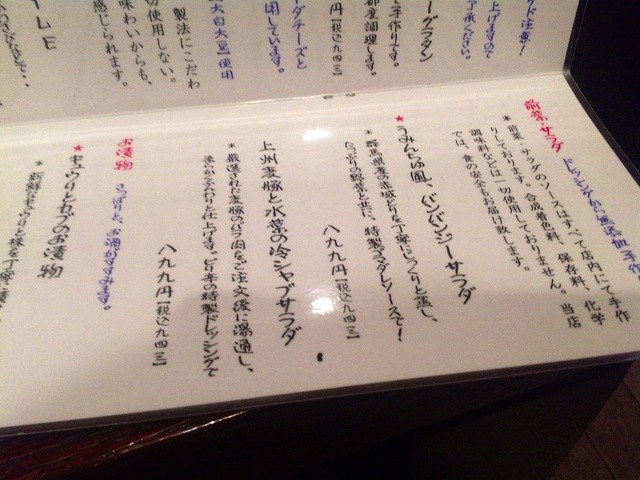 ド注意!
上げますので
ア承ください。
ーグラタン
て手作りです。
都度調理します。
円【税込九四三】
ダチーズと
用しています。
大白大豆】使用
製法にこだわ
切使用しない。
味わいからも、
感じられます。
LE
前菜・サラダ
ドレッシングから無添加手作
* 前菜・サラダのソースはすべて店内にて手作
りしております。合成着色料、保存料、化学
調味料などは一切使用しておりません。当店
では、食の安全もお届け致します。
★うみんちゅ風、バンバンジーサラダ
* 群馬県産の赤城どりを丁寧にじっくりと蒸し、
たっぷりの野菜と共に、特製ゴマダレソースで!
八九九円【税込九四三】
上州麦豚と水菜の冷シャブサラダ
* 厳選された麦豚のバラ肉をご注文後に湯通し、
柔らかふわりと仕上げます。ピリ辛の特製ドレッシングで
八九九円【税込九四三】
お漬物
さっぱりと、お酒がすすみます。
★キュウリとカブのお漬物
* 新鮮なキュウリと